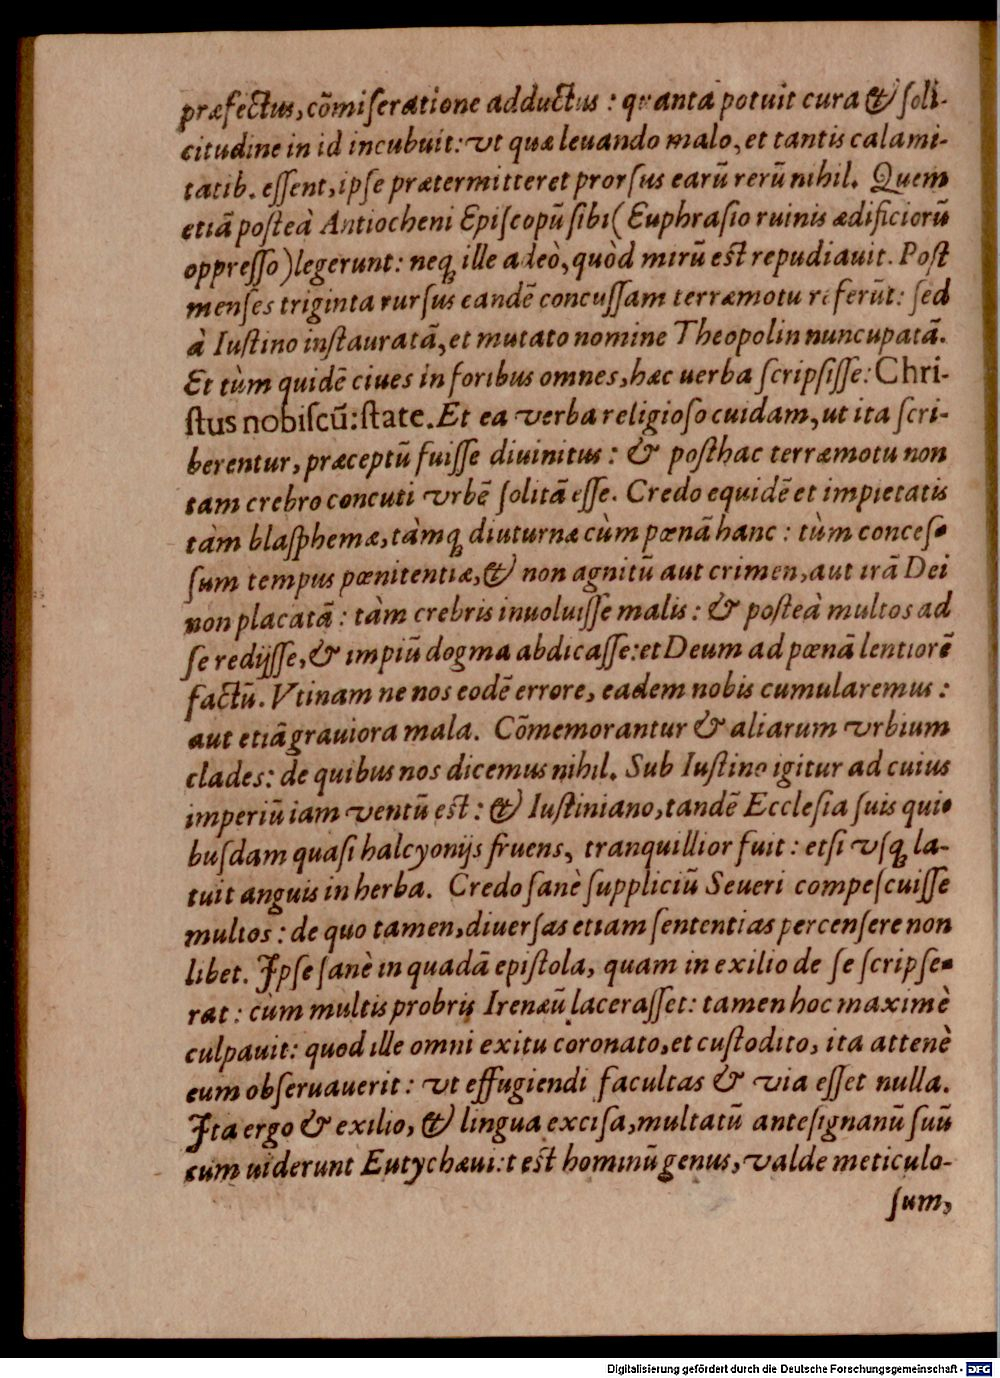 præfectus, cõmiſeratione adductus : quanta potuit cura & ſoli-
citudine in id incubuit: vt quæ leuando malo, et tantis calami-
tatib. eſſent, ipſe prætermitteret prorſus earũ rerũ nihil. Quem
etiã poſteà Antiocheni Epiſcopũ ſibi (Euphraſio ruinis ædificiorũ
oppreſſo) legerunt: neq; ille adeò, quòd mirũ est repudiauit. Poſt
menſes triginta rurſus eandẽ concuſſam terræmotu referũt: ſed
à Iuſtino inſtauratã, et mutato nomine Theopolin nuncupatã.
Et tùm quidẽ ciues in foribus omnes, hæc uerba ſcripſiſſe: Chri-
ſtus nobiſcũ: ſtate. Et ea verba religioſo cuidam, ut ita ſcri-
berentur, præceptũ fuiſſe diuinitus : & poſthac terræmotu non
tam crebro concuti vrbẽ ſolitã eſſe. Credo equidẽ et impietatis
tàm blaſphemæ, tàmq; diuturnæ cùm pœnã hanc : tùm conceſ-
ſum tempus pœnitentiæ, & non agnitũ aut crimen, aut irã Dei
non placatã : tàm crebris inuoluiſſe malis : & poſteà multos ad
ſe redijſſe, & impiũ dogma abdicaſſe: et Deum ad pœnã lentiorẽ
factũ. Vtinam ne nos eodẽ errore, eadem nobis cumularemus :
aut etiã grauiora mala. Cõmemorantur & aliarum vrbium
clades: de quibus nos dicemus nihil. Sub Iuſtino igitur ad cuius
imperiũ iam ventũ est : & Iuſtiniano, tandẽ Eccleſia ſuis qui-
buſdam quaſi halcyonijs fruens, tranquillior fuit : etſi vſq; la-
tuit anguis in herba. Credo ſanè ſuppliciũ Seueri compeſcuiſſe
multos : de quo tamen, diuerſas etiam ſententias percenſere non
libet. Ipſe ſanè in quadã epiſtola, quam in exilio de ſe ſcripſe-
rat : cùm multis probris Irenæũ laceraſſet: tamen hoc maximè
culpauit: quod ille omni exitu coronato, et cuſtodito, ita attenè
eum obſeruauerit : vt effugiendi facultas & via eſſet nulla.
Ita ergo & exilio, & lingua exciſa, multatũ anteſignanũ ſuũ
cum uiderunt Eutychæui: t est hominũ genus, valde meticulo-
ſum,
Digitalisierung gefördert durch die Deutsche Forschungsgemeinschaft - DFG